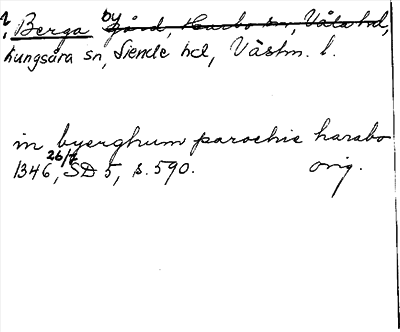 Berga by ~~gård, Harbo sn, Våla hd,~~
Kungsåra sn, Siende hd, Västm. l.
in byerghum parochie harabo
1346 26/7, SD 5, s. 590. orig.